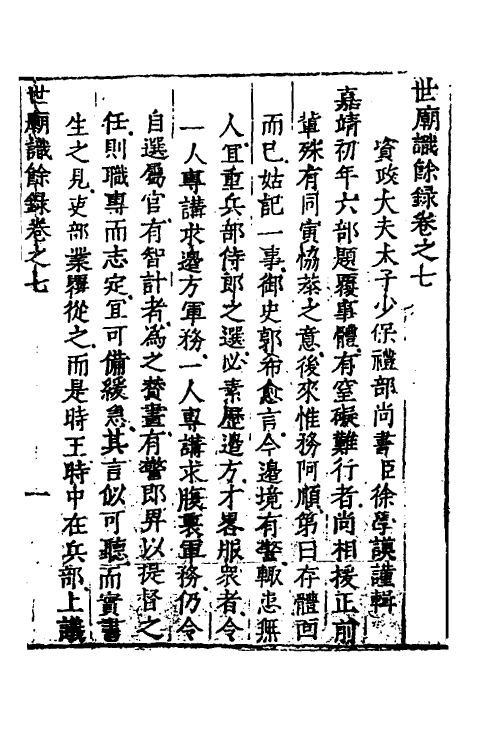 世廟識餘錄卷之七
資政大夫太子少保禮部尚書臣徐學謨謹輯
嘉靖初年六部題覆事體有窒礙難行者尚相援正前
輩殊有同寅恊恭之意後來惟務阿順第曰存體面
而已姑記一事御史郭希愈言今邊境有警輙患無
人宜重兵部侍郎之選必素歷邊方才畧服衆者令
一人專講求邊方軍務一人專講求腹裏軍務仍令
自選屬官有智計者為之賛畫有警即畀以提督之
任則職專而志定宜可備緩急其言似可聽而實書
生之見吏部業覆從之而是時王時中在兵部上議
世廟識餘錄卷之七
一